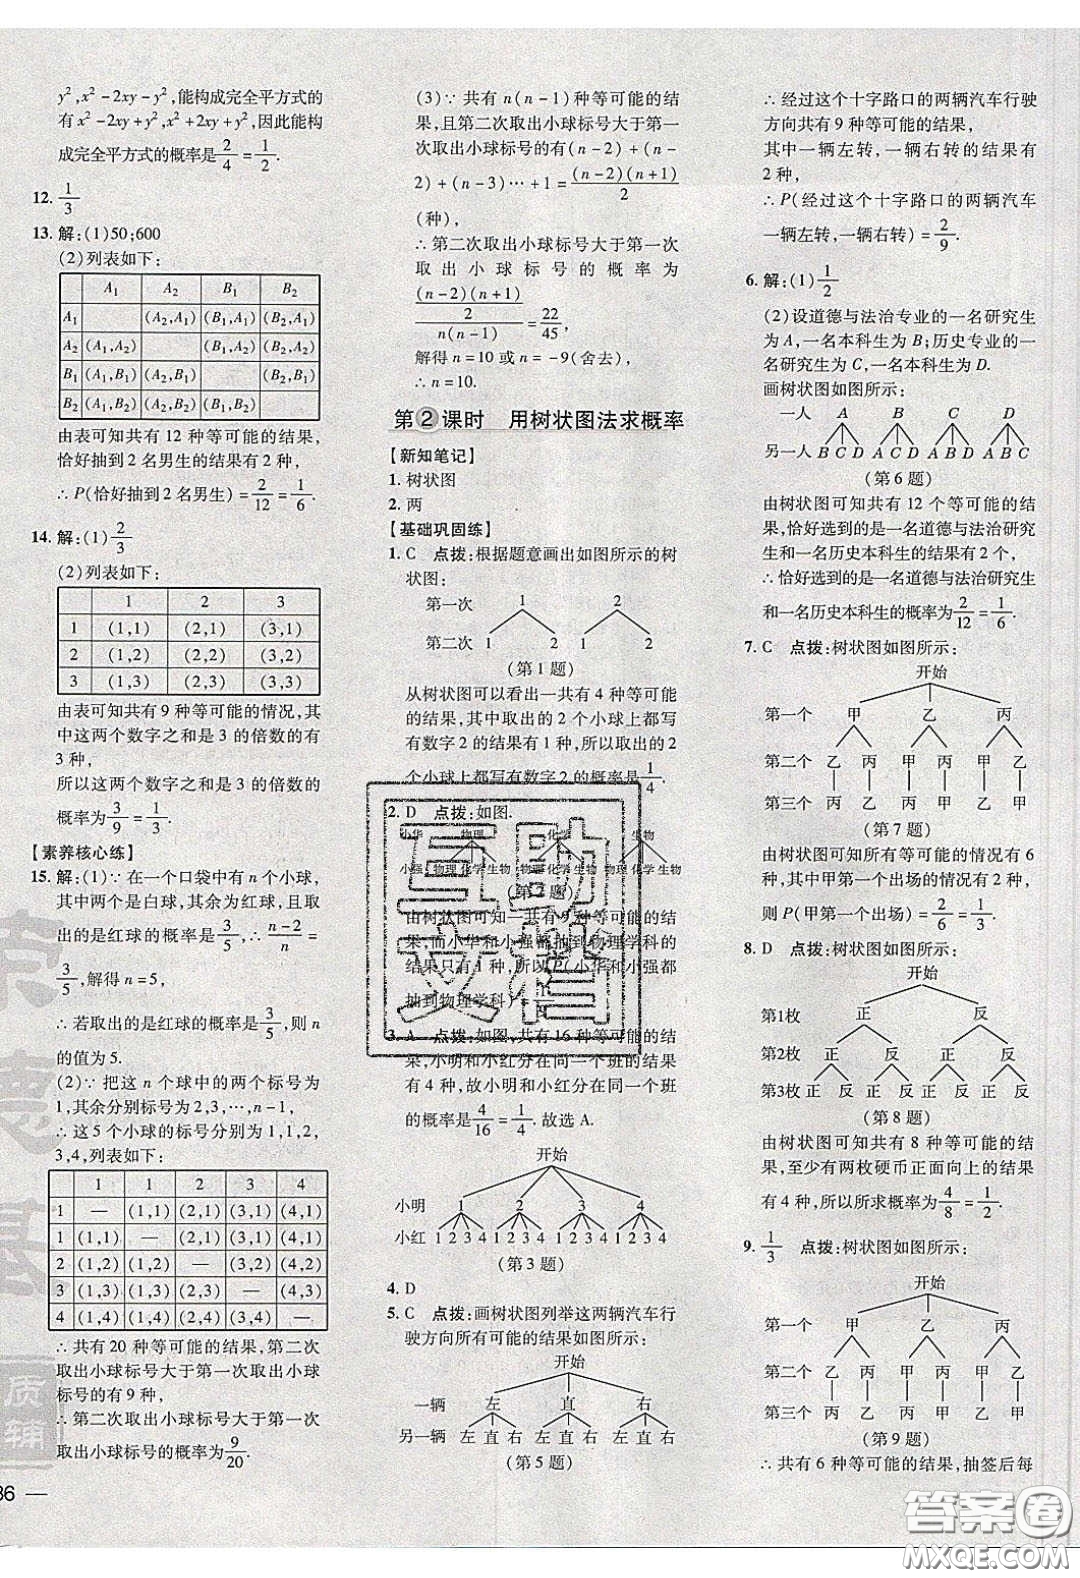 y²,x²-2xy-y²,能构成完全平方式的
有x²-2xy+y²,x²+2xy+y²,因此能构
成完全平方式的概率是2/4=1/2.
12. 1/3
13. 解:(1)50;600
(2)列表如下:
A₁ A₂ B₁ B₂
A₁ (A₂,A₁) (B₁,A₁) (B₂,A₁)
A₂ (A₁,A₂) (B₁,A₂) (B₂,A₂)
B₁ (A₁,B₁) (A₂,B₁) (B₂,B₁)
B₂ (A₁,B₂) (A₂,B₂) (B₁,B₂)
由表可知共有 12 种等可能的结果,
恰好抽到 2 名男生的结果有 2 种,
∴P(恰好抽到 2 名男生)=2/12=1/6.
14. 解:(1)2/3
(2)列表如下:
1 2 3
1 (1,1) (2,1) (3,1)
2 (1,2) (2,2) (3,2)
3 (1,3) (2,3) (3,3)
由表可知共有 9 种等可能的情况,其
中这两个数字之和是 3 的倍数的有
3 种,
所以这两个数字之和是 3 的倍数的
概率为3/9=1/3.
【素养核心练】
15. 解:(1)∵在一个口袋中有 n 个小球,
其中两个是白球,其余为红球,且取
出的是红球的概率为3/5,∴(n-2)/n=
3/5,解得 n=5,
∴若取出的是红球的概率是3/5,则 n
的值为 5.
(2)∵把这 n 个球中的两个标号为
1,其余分别标号为 2,3,…,n-1,
∴这 5 个小球的标号分别为 1,1,2,
3,4,列表如下:
1 1 2 3 4
1 — (1,1) (2,1) (3,1) (4,1)
1 (1,1) — (2,1) (3,1) (4,1)
2 (1,2) (1,2) — (3,2) (4,2)
3 (1,3) (1,3) (2,3) — (4,3)
4 (1,4) (1,4) (2,4) (3,4) —
∴共有 20 种等可能的结果,第二次
取出小球标号大于第一次取出小球
标号的有 9 种,
∴第二次取出小球标号大于第一次
取出小球标号的概率为9/20.
(3)∵共有 n(n-1)种等可能的结
果,且第二次取出小球标号大于第一
次取出小球标号的有(n-2)+(n-
2)+(n-3)…+1=(n-2)(n+1)/2
(种),
∴第二次取出小球标号大于第一次
取出小球标号的概率为
((n-2)(n+1)/2)/(n(n-1))=22/45,
解得 n=10 或 n=-9(舍去).
∴n=10.
第2课时 用树状图法求概率
【新知笔记】
1. 树状图
2. 两
【基础巩固练】
1. C 点拨:根据题意画出如图所示的树
状图:
第一次 1 2
第二次 1 2 1 2
(第 1 题)
从树状图可以看出一共有 4 种等可能
的结果,其中取出的 2 个小球上都写
有数字 2 的有 1 种,所以取出的 2
个小球上都写有数字 2 的概率是1/4.
2. D 点拨:如图.
小华 物理 化学 生物
小强 物理 化学 生物 物理 化学 生物 物理 化学 生物
(第 2 题)
由树状图可知一共有 9 种等可能的结
果,而小华和小强都抽到物理学科的
结果只有 1 种,所以 P(小华和小强都
抽到物理学科)=1/9.
3. A 点拨:如图,共有 16 种等可能的结
果,小明和小红分在同一个班的结果
有 4 种,故小明和小红分在同一个班
的概率是4/16=1/4.故选 A.
开始
小明 1 2 3 4
小红 1 2 3 4 1 2 3 4 1 2 3 4 1 2 3 4
(第 3 题)
4. D
5. C 点拨:画树状图列举这两辆汽车行
驶方向所有可能的结果如图所示:
开始
一辆 左 直 右
另一辆 左 直 右 左 直 右 左 直 右
(第 5 题)
∴经过这个十字路口的两辆汽车行驶
方向共有 9 种等可能的结果,
其中一辆左转,一辆右转的结果有
2 种,
∴P(经过这个十字路口的两辆汽车
一辆左转,一辆右转)=2/9.
6. 解:(1)1/2
(2)设道德与法治专业的一名研究生
为 A,一名本科生为 B;历史专业的一
名研究生为 C,一名本科生为 D.
画树状图如图所示:
一人 A B C D
另一人 B C D A C D A B D A B C
(第 6 题)
由树状图可知共有 12 个等可能的结
果,恰好选到的是一名道德与法治研究
生和一名历史本科生的结果有 2 个,
∴恰好选到的是一名道德与法治研究生
和一名历史本科生的概率为2/12=1/6.
7. C 点拨:树状图如图所示:
开始
第一个 甲 乙 丙
第二个 乙 丙 甲 丙 甲 乙
第三个 丙 乙 丙 甲 乙 甲
(第 7 题)
由树状图可知所有等可能的情况有 6
种,其中甲第一个出场的情况有 2 种,
则 P(甲第一个出场)=2/6=1/3.
8. D 点拨:树状图如图所示:
开始
第1枚 正 反
第2枚 正 反 正 反
第3枚 正 反 正 反 正 反 正 反
(第 8 题)
由树状图可知共有 8 种等可能的结
果,至少有两枚硬币正面向上的结果
有 4 种,所以所求概率为4/8=1/2.
9. 1/3 点拨:树状图如图所示:
开始
第一个 甲 乙 丙
第二个 乙 丙 甲 丙 甲 乙
第三个 丙 乙 丙 甲 乙 甲
(第 9 题)
∴共有 6 种等可能的结果,抽签后每
36 —
质
辅
互助
文档
答案圈
MXQE.COM